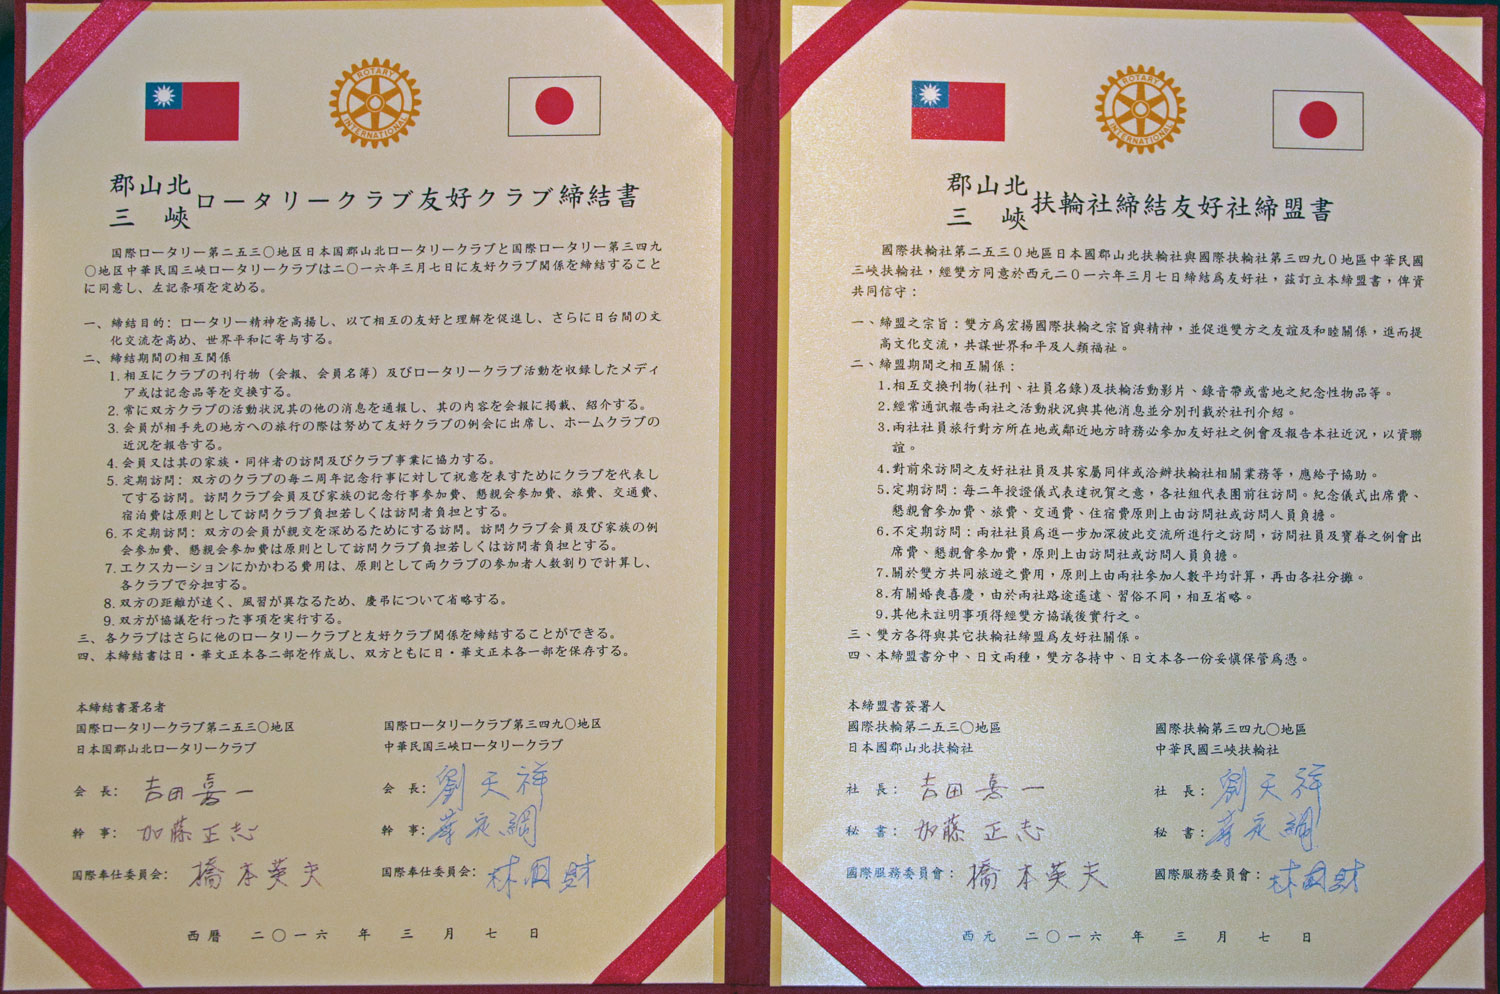 ROTARY
INTERNATIONAL
郡山北
三　峽
ロータリークラブ友好クラブ締結書
国際ロータリー第二五三〇地区日本国郡山北ロータリークラブと国際ロータリー第三四九
〇地区中華民国三峡ロータリークラブは二〇一六年三月七日に友好クラブ関係を締結すること
に同意し、左記条項を定める。
一、締結目的：ロータリー精神を高揚し、以て相互の友好と理解を促進し、さらに日台間の文
化交流を高め、世界平和に寄与する。
二、締結期間の相互関係
1.相互にクラブの刊行物（会報、会員名簿）及びロータリークラブ活動を収録したメディ
ア或は記念品等を交換する。
2.常に双方クラブの活動状況其の他の消息を通報し、其の内容を会報に掲載、紹介する。
3.会員が相手先の地方への旅行の際は努めて友好クラブの例会に出席し、ホームクラブの
近況を報告する。
4.会員又は其の家族・同伴者の訪問及びクラブ事業に協力する。
5.定期訪問：双方のクラブの毎二周年記念行事に対して祝意を表すためにクラブを代表し
てする訪問。訪問クラブ会員及び家族の記念行事参加費、懇親会参加費、旅費、交通費、
宿泊費は原則として訪問クラブ負担若しくは訪問者負担とする。
6.不定期訪問：双方の会員が親交を深めるためにする訪問。訪問クラブ会員及び家族の例
会参加費、懇親会参加費は原則として訪問クラブ負担若しくは訪問者負担とする。
7.エクスカーションにかかわる費用は、原則として両クラブの参加者人数割りで計算し、
各クラブで分担する。
8.双方の距離が遠く、風習が異なるため、慶弔について省略する。
9.双方が協議を行った事項を実行する。
三、各クラブはさらに他のロータリークラブと友好クラブ関係を締結することができる。
四、本締結書は日・華文正本各二部を作成し、双方ともに日・華文正本各一部を保存する。
本締結書署名者
国際ロータリークラブ第二五三〇地区
日本国郡山北ロータリークラブ
会　長：吉田喜一
幹　事：加藤正志
国際奉仕委員会：橋本英夫
国際ロータリークラブ第三四九〇地区
中華民国三峡ロータリークラブ
会　長：劉天祥
幹　事：
国際奉仕委員会：林國財
西暦　二〇一六　年　三　月　七　日
ROTARY
INTERNATIONAL
郡山北
三　峽
扶輪社締結友好社締盟書
國際扶輪社第二五三０地區日本國郡山北扶輪社與國際扶輪社第三四九０地區中華民國
三峽扶輪社，經雙方同意於西元二０一六年三月七日締結爲友好社，茲訂立本締盟書，俾資
共同信守：
一、締盟之宗旨：雙方爲宏揚國際扶輪之宗旨與精神，並促進雙方之友誼及和睦關係，進而提
高文化交流，共謀世界和平及人類福祉。
二、締盟期間之相互關係：
1.相互交換刊物(社刊、社員名錄)及扶輪活動影片、錄音帶或當地之紀念性物品等。
2.經常通訊報告兩社之活動狀況與其他消息並分別刊載於社刊介紹。
3.兩社社員旅行對方所在地或鄰近地方時務必參加友好社之例會及報告本社近況，以資聯
誼。
4.對前來訪問之友好社社員及其家屬同伴或洽辦扶輪社相關業務等，應給予協助。
5.定期訪問：每二年授證儀式表達祝賀之意，各社組代表團前往訪問。紀念儀式出席費、
懇親會參加費、旅費、交通費、住宿費原則上由訪問社或訪問人員負擔。
6.不定期訪問：兩社社員爲進一步加深彼此交流所進行之訪問，訪問社員及寶眷之例會出
席費、懇親會參加費，原則上由訪問社或訪問人員負擔。
7.關於雙方共同旅遊之費用，原則上由兩社參加人數平均計算，再由各社分攤。
8.有關婚喪喜慶，由於兩社路途遙遠、習俗不同，相互省略。
9.其他未註明事項得經雙方協議後實行之。
三、雙方各得與其它扶輪社締盟爲友好社關係。
四、本締盟書分中、日文兩種，雙方各持中、日文本各一份妥愼保管爲憑。
本締盟書簽署人
國際扶輪第二五三〇地區
日本國郡山北扶輪社
社　長：吉田喜一
秘　書：加藤正志
國際服務委員會：橋本英夫
國際扶輪第三四九〇地區
中華民國三峽扶輪社
社　長：劉天祥
秘　書：
國際服務委員會：林國財
西元　二〇一六　年　三　月　七　日